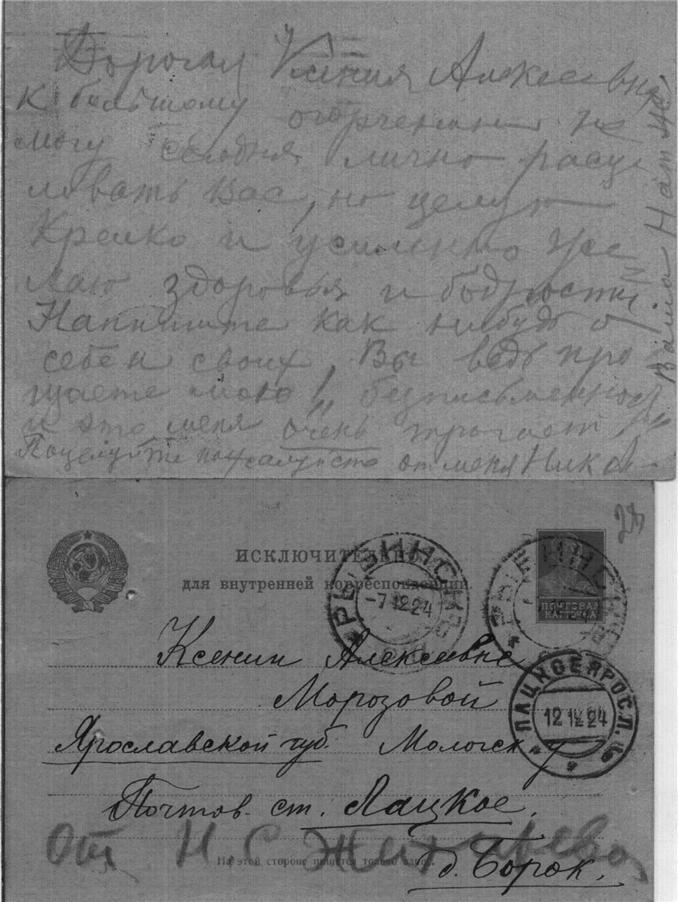 Дорогая Ксения Алексеевна
К большому огорчению не
могу сегодня лично расце
ловать Вас, но целую
Крепко и усиленно же
лаю здоровья и бодрости
Напишите как нибудь о
себе и своих, Вы ведь про
щаете мою безписьменность
и это меня очень трогает!
Поцелуйте пожалуйста от меня Никол
Ваша Нат
28
ИСКЛЮЧИТЕЛЬНО
для внутренней корреспонденции.
РЫБИНСК
-7 12 24
РЫБИНСК
ПОЧТОВАЯ
КАРТОЧКА
Ксении Алексеевне
Морозовой
ЛАЦКОЕ ЯРОСЛ.
12 12 24
Ярославской губ. Мологск у
Почтов. ст. Лацкое.
На этой стороне пишется только адрес.
От Н. С. Жихарево
д. Борок.